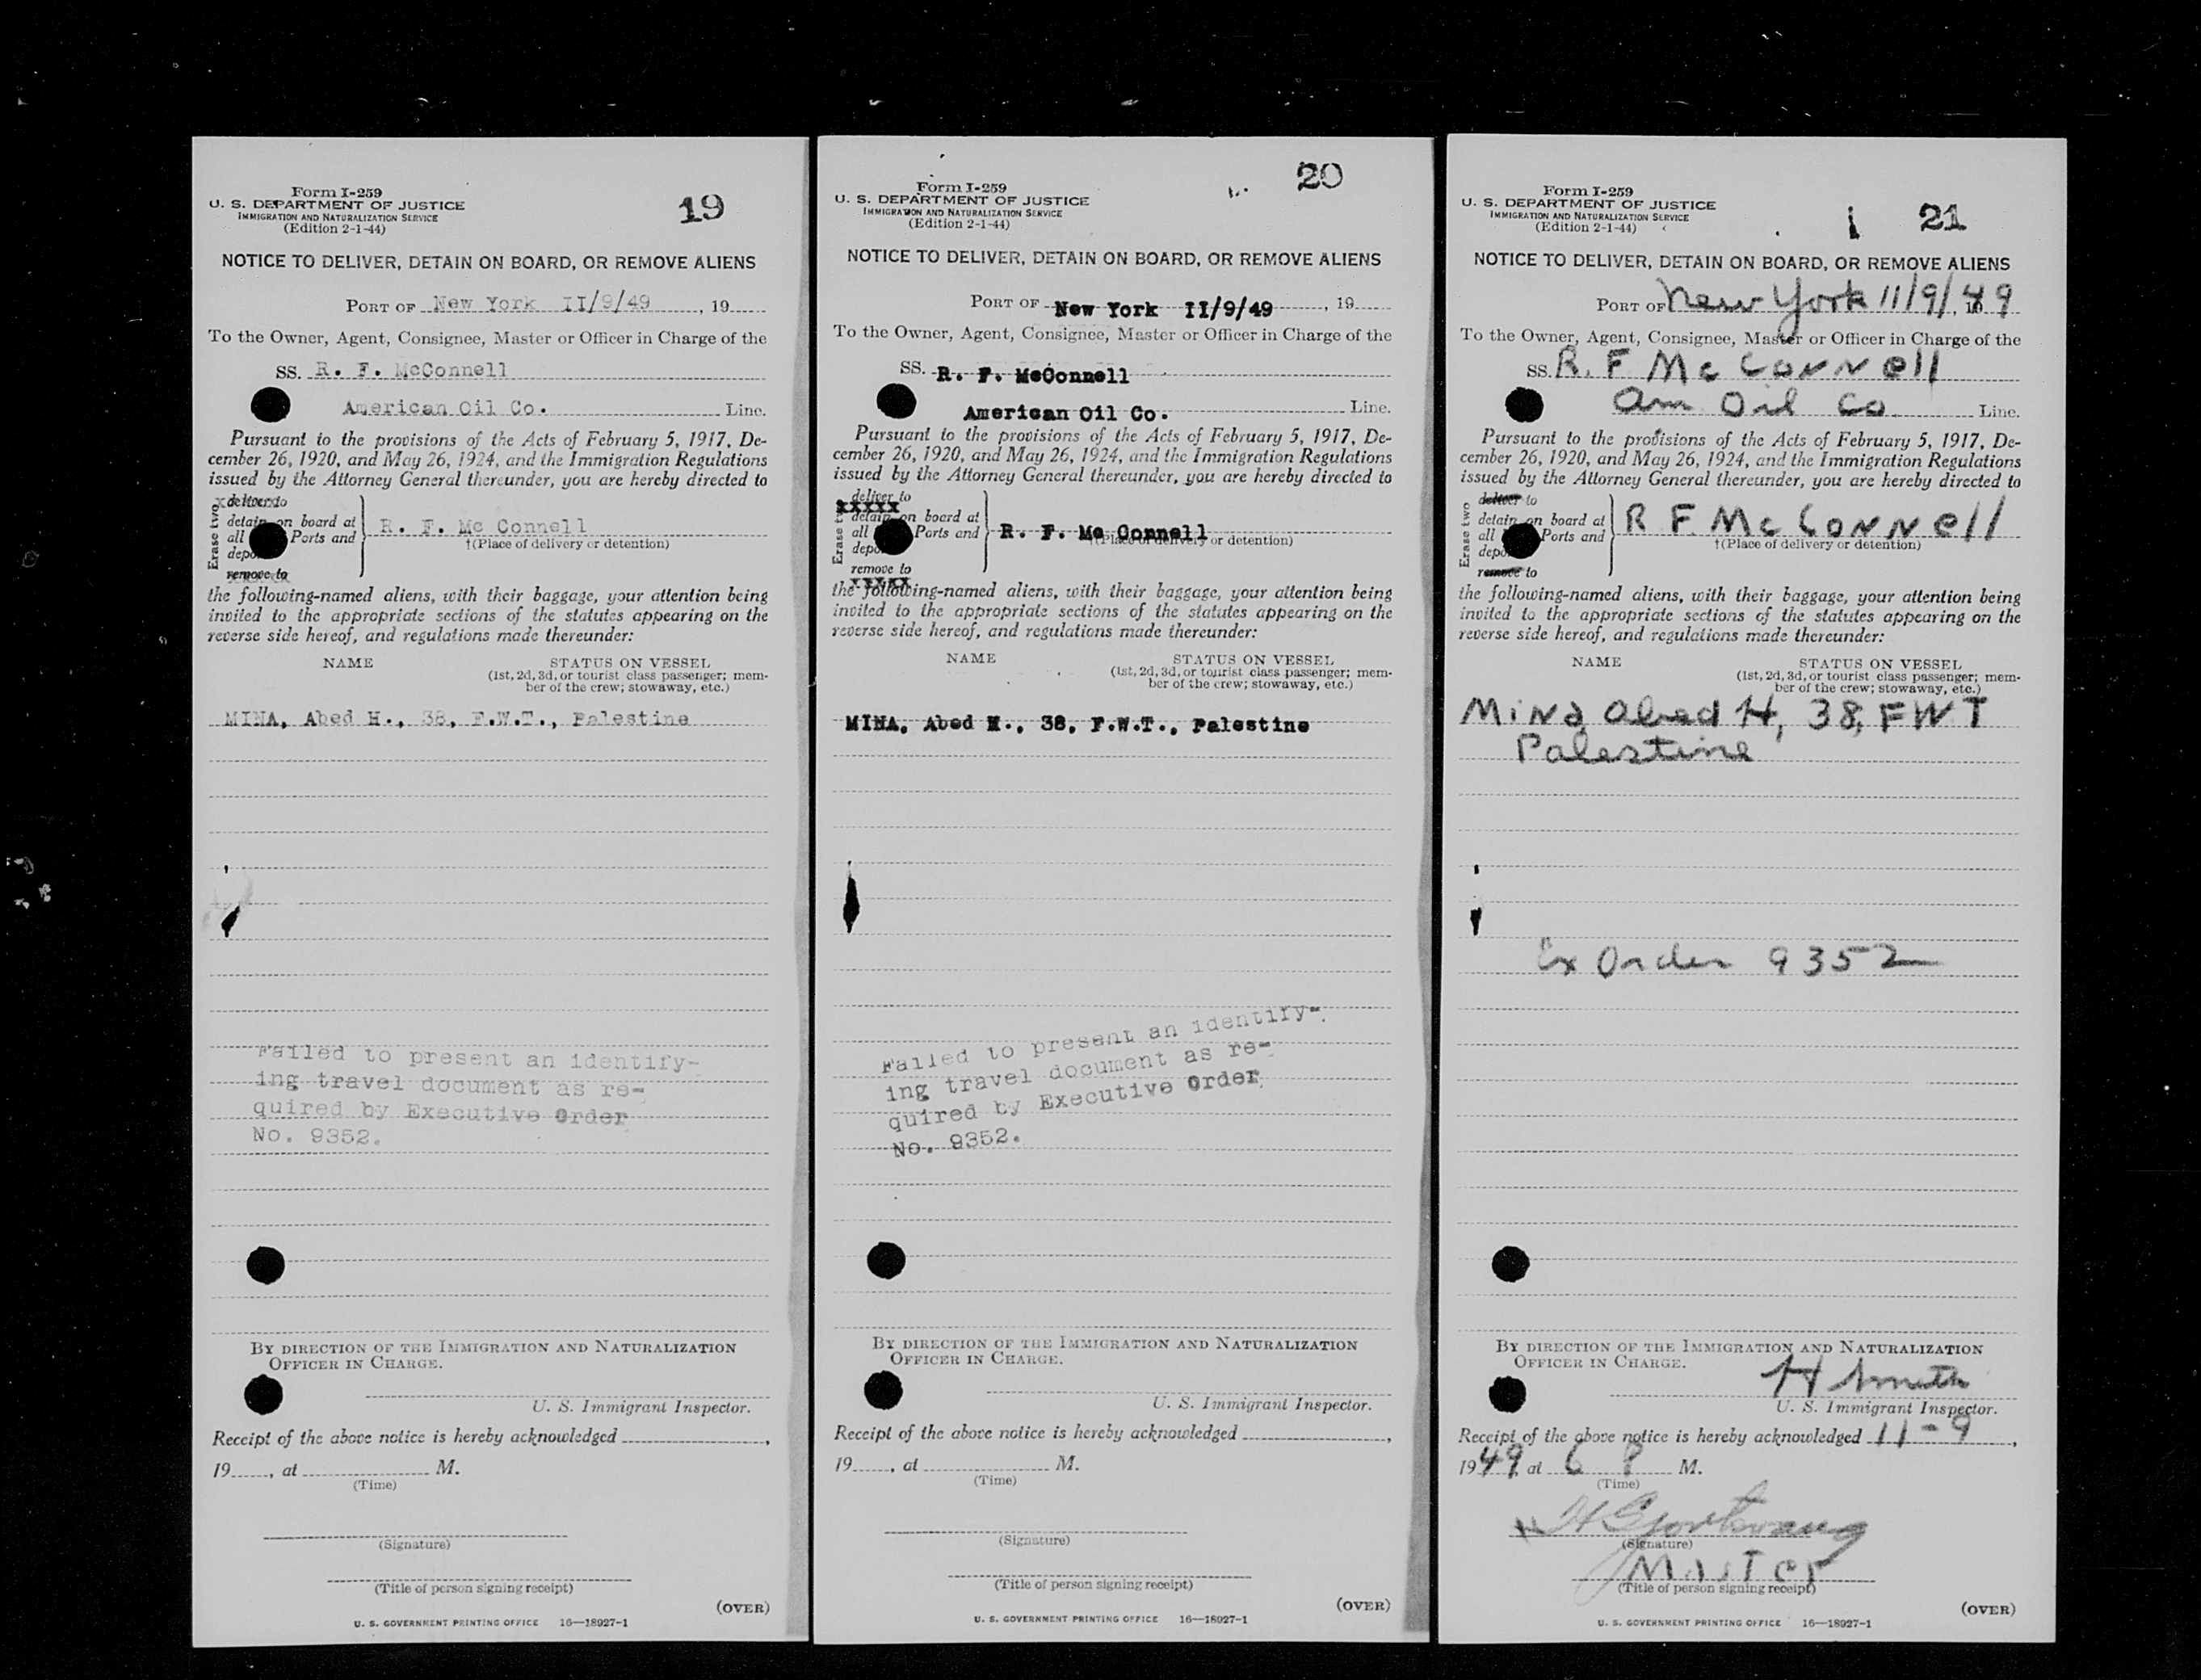 Form I-259
U. S. DEPARTMENT OF JUSTICE
IMMIGRATION AND NATURALIZATION SERVICE
(Edition 2-1-44)
19
NOTICE TO DELIVER, DETAIN ON BOARD, OR REMOVE ALIENS
PORT OF New York II/9/49, 19
To the Owner, Agent, Consignee, Master or Officer in Charge of the
SS. R. F. McConnell
American Oil Co. Line.
Pursuant to the provisions of the Acts of February 5, 1917, De-
cember 26, 1920, and May 26, 1924, and the Immigration Regulations
issued by the Attorney General thereunder, you are hereby directed to
Erase two
deliver to
detain on board at
all Ports and
remove to
R. F. Mc Connell
†(Place of delivery or detention)
the following-named aliens, with their baggage, your attention being
invited to the appropriate sections of the statutes appearing on the
reverse side hereof, and regulations made thereunder:
NAME STATUS ON VESSEL
(1st, 2d, 3d, or tourist class passenger; mem-
ber of the crew; stowaway, etc.)
MINA, Abed H., 38, F.W.T., Palestine
Failed to present an identify-
ing travel document as re-
quired by Executive Order
No. 9352.
BY DIRECTION OF THE IMMIGRATION AND NATURALIZATION
OFFICER IN CHARGE.
U. S. Immigrant Inspector.
Receipt of the above notice is hereby acknowledged ,
19 , at M.
(Time)
(Signature)
(Title of person signing receipt)
(OVER)
U. S. GOVERNMENT PRINTING OFFICE 16—18927-1
Form I-259
U. S. DEPARTMENT OF JUSTICE
IMMIGRATION AND NATURALIZATION SERVICE
(Edition 2-1-44)
20
NOTICE TO DELIVER, DETAIN ON BOARD, OR REMOVE ALIENS
PORT OF New York II/9/49, 19
To the Owner, Agent, Consignee, Master or Officer in Charge of the
SS. R. F. McConnell
American Oil Co. Line.
Pursuant to the provisions of the Acts of February 5, 1917, De-
cember 26, 1920, and May 26, 1924, and the Immigration Regulations
issued by the Attorney General thereunder, you are hereby directed to
deliver to
xxxxx
detain on board at
all Ports and
remove to
xxxxx
R. F. Mc Connell
†(Place of delivery or detention)
the following-named aliens, with their baggage, your attention being
invited to the appropriate sections of the statutes appearing on the
reverse side hereof, and regulations made thereunder:
NAME STATUS ON VESSEL
(1st, 2d, 3d, or tourist class passenger; mem-
ber of the crew; stowaway, etc.)
MINA, Abed H., 38, F.W.T., Palestine
Failed to present an identify-
ing travel document as re-
quired by Executive Order
No. 9352.
BY DIRECTION OF THE IMMIGRATION AND NATURALIZATION
OFFICER IN CHARGE.
U. S. Immigrant Inspector.
Receipt of the above notice is hereby acknowledged ,
19 , at M.
(Time)
(Signature)
(Title of person signing receipt)
(OVER)
U. S. GOVERNMENT PRINTING OFFICE 16—18927-1
Form I-259
U. S. DEPARTMENT OF JUSTICE
IMMIGRATION AND NATURALIZATION SERVICE
(Edition 2-1-44)
21
NOTICE TO DELIVER, DETAIN ON BOARD, OR REMOVE ALIENS
PORT OF New York 11/9/, 1949
To the Owner, Agent, Consignee, Master or Officer in Charge of the
SS. R. F McConnell
Am Oil Co Line.
Pursuant to the provisions of the Acts of February 5, 1917, De-
cember 26, 1920, and May 26, 1924, and the Immigration Regulations
issued by the Attorney General thereunder, you are hereby directed to
Erase two
deliver to
detain on board at
all Ports and
remove to
R F McConnell
†(Place of delivery or detention)
the following-named aliens, with their baggage, your attention being
invited to the appropriate sections of the statutes appearing on the
reverse side hereof, and regulations made thereunder:
NAME STATUS ON VESSEL
(1st, 2d, 3d, or tourist class passenger; mem-
ber of the crew; stowaway, etc.)
Mina Abed H, 38, FWT
Palestine
Ex Order 9352
BY DIRECTION OF THE IMMIGRATION AND NATURALIZATION
OFFICER IN CHARGE.
H Smith
U. S. Immigrant Inspector.
Receipt of the above notice is hereby acknowledged 11-9,
1949, at 6 P M.
(Time)
(Signature)
Master
(Title of person signing receipt)
(OVER)
U. S. GOVERNMENT PRINTING OFFICE 16—18927-1